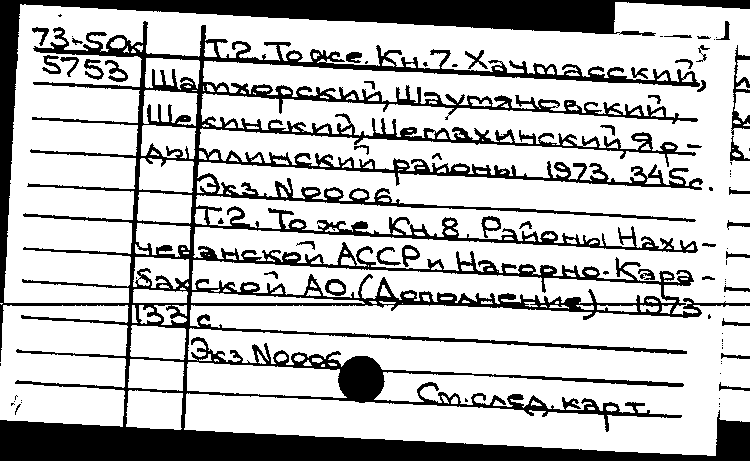 73-50к Т.2. То же. Кн.7. Хачмасский,
5753 Шамхорский, Шаумяновский,
Шекинский, Шемахинский, Яр-
дымлинский районы. 1973. 345с.
Экз. N0006.
Т.2. То же. Кн.8. Районы Нахи-
чеванской АССР и Нагорно-Кара-
бахской АО. (Дополнение). 1973.
133 с.
Экз. N0006
См. след. карт.